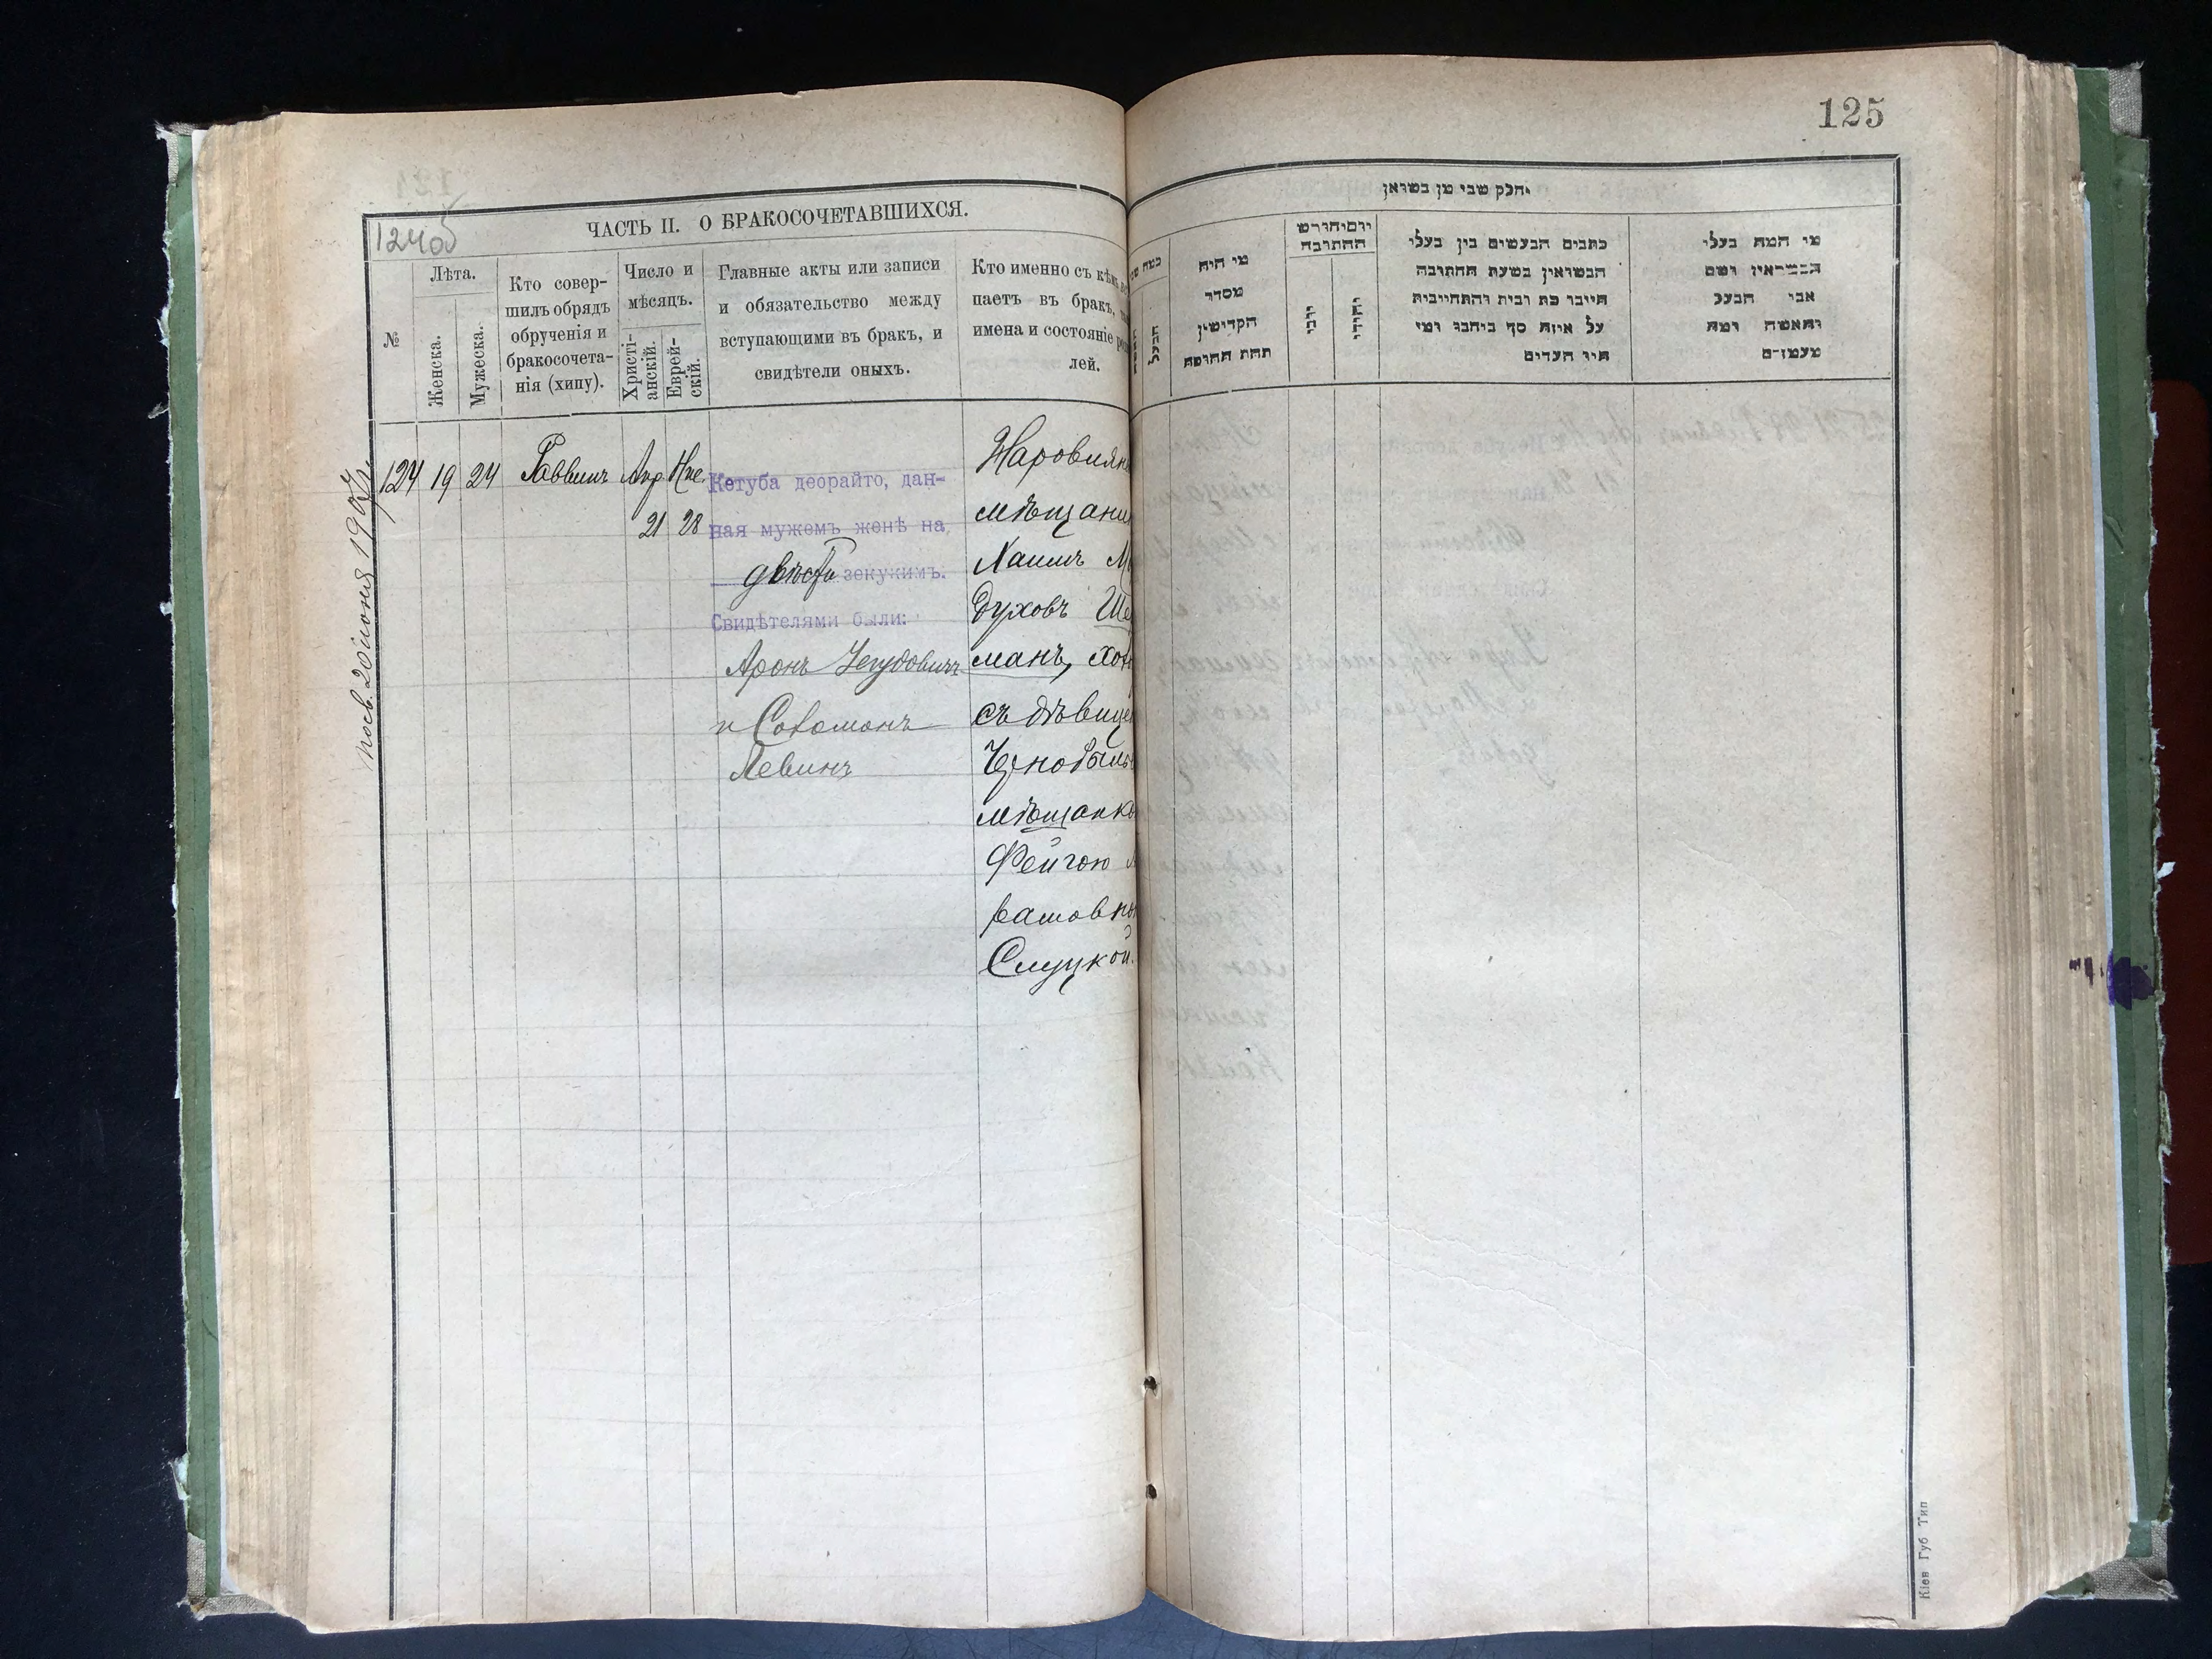 124об
ЧАСТЬ II. О БРАКОСОЧЕТАВШИХСЯ.
№
Лѣта.
Женска.
Мужеска.
Кто совер-
шилъ обрядъ
обрученія и
бракосочета-
нія (хипу).
Число и
мѣсяцъ.
Христі-
анскій.
Еврей-
скій.
Главные акты или записи
и обязательство между
вступающими въ бракъ, и
свидѣтели оныхъ.
Кто именно съ кѣмъ
паетъ въ бракъ,
имена и состояніе
лей.
124 19 24 Раввинъ Апр Ние.
21 28
Кетуба деорайто, дан-
ная мужемъ женѣ на
двѣсти зекукимъ.
Свидѣтелями были:
Аронъ
и Соломонъ
Левинъ
мѣщанин
Хаимъ М
Духовъ Ше
манъ, хол
съ дѣвицей
Чернобыльс
мѣщанко
Фейгою
рамовно
Слуцкой.
посв. 20 іюня 1907
125
חלק שני מן נשואן
הבעל
מי היה
מסדר
הקדושין
תחת החופה
יום וחודש
החתונה
יוני
יהודי
כתבים הנעשים בין בעלי
הנשואין בשעת החתונה
על איזה סך ניתנו ומי
היו העדים
מי המה בעלי
הנשואין ושם
אבי הבעל
והאשה ומה
מעמדם
Кіев Губ Тип